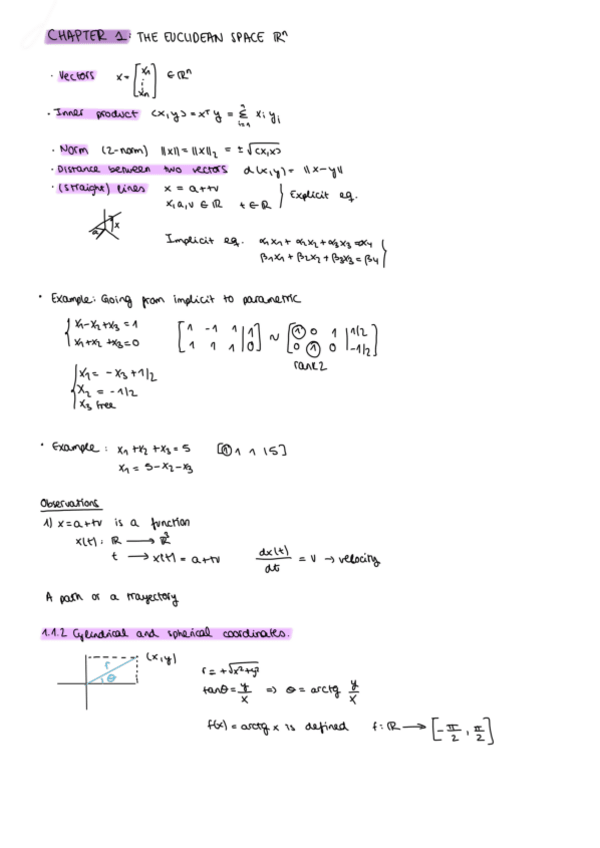 CHAPTER 1: THE EUCLIDEAN SPACE ℝⁿ
· Vectors x = [x₁ ⋮ xₙ] ∈ ℝⁿ
· Inner product ⟨x,y⟩ = xᵀy = Σⁿᵢ₌₁ xᵢ yᵢ
· Norm (2-norm) ||x|| = ||x||₂ = ±√⟨x,x⟩
· Distance between two vectors d(x,y) = ||x-y||
· (straight) lines x = a+tv
x,a,v ∈ ℝ t ∈ ℝ } Explicit eq.
a x
Implicit eq. α₁x₁ + α₁x₂ + α₃x₃ = α₄
β₁x₁ + β₂x₂ + β₃x₃ = β₄ }
· Example: Going from implicit to parametric
{ x₁-x₂+x₃ = 1 [ 1 -1 1 | 1 ] ~ [ 1 0 1 | 1/2 ]
x₁+x₂+x₃ = 0 [ 1 1 1 | 0 ] [ 0 1 0 | -1/2 ]
rank 2
{ x₁ = -x₃ + 1/2
x₂ = -1/2
x₃ free
· Example: x₁ + x₂ + x₃ = 5 [1 1 1 | 5]
x₁ = 5-x₂-x₃
Observations
1) x = a+tv is a function
x(t): ℝ → ℝ³
t → x(t) = a+tv dx(t)/dt = v → velocity
A path or a trayectory
1.1.2 Cylindrical and spherical coordinates.
(x,y)
r θ
r = +√x²+y²
tanθ = y/x ⇒ θ = arctg y/x
f(x) = arctg x is defined f: ℝ → [-π/2, π/2]